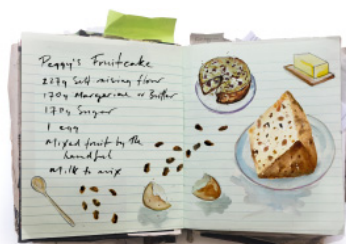 Peggy's Fruitcake
227g Self raising flour
170g Margarine or Butter
170g Sugar
1 egg
Mixed fruit by the
handful
Milk to mix